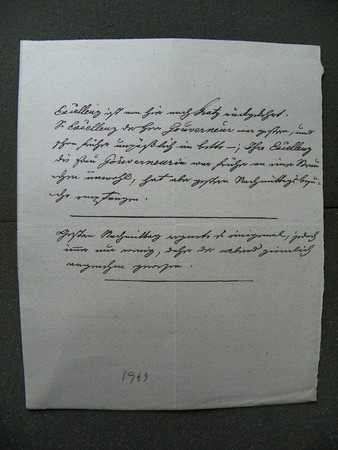 Excellenz ist von hier nach Graz zurückgekehrt.
S. Excellenz der Herr Gouverneur war gestern, und
schon früher unpäßlich im Bette –; Ihre Excellenz
die Frau Gouverneurin war früher an
unwohl, hat aber gestern Nachmittagsbesu-
che empfangen.
Gestern Nachmittag regnete es einigemal, jedoch
immer nur wenig, daher der Abend ziemlich
angenehm gewesen.
1949